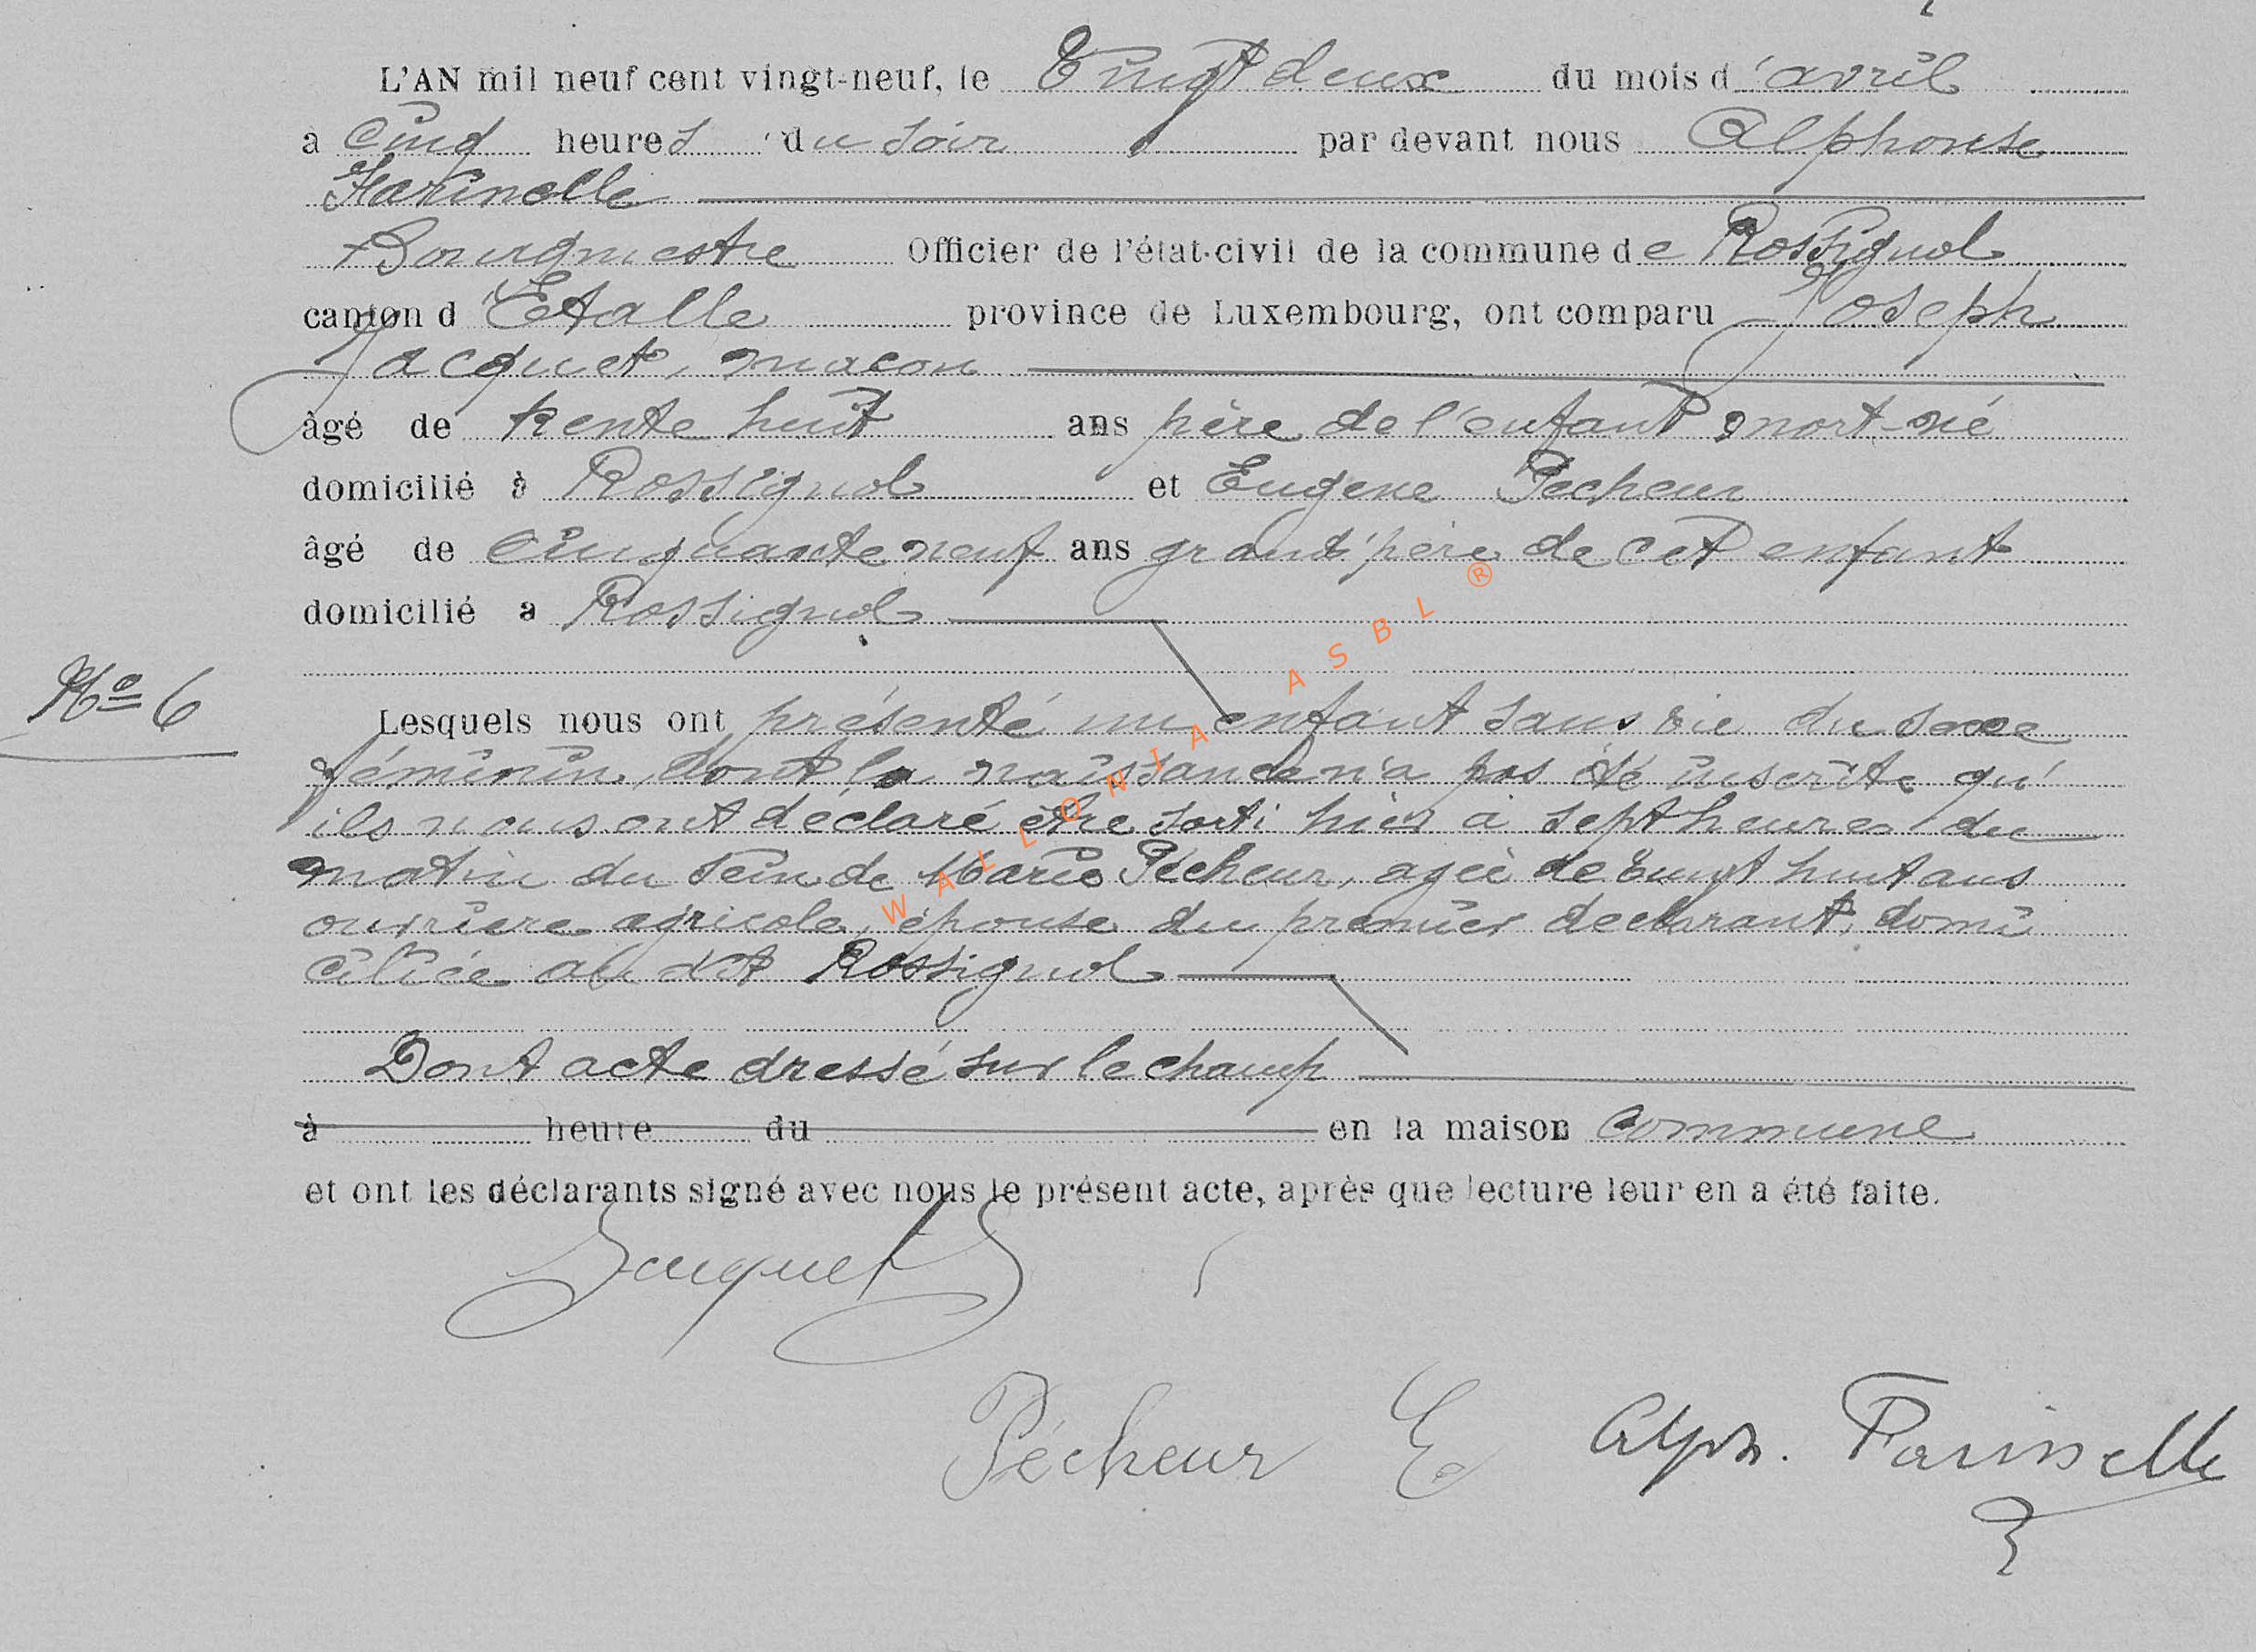 L'AN mil neuf cent vingt-neuf, le Vingt deux du mois d'avril
a cinq heures du soir par devant nous Alphonse
Farinelle
Bourgmestre Officier de l'état-civil de la commune de Rossignol
canton d'Etalle province de Luxembourg, ont comparu Joseph
Jacquet, maçon
âgé de trente huit ans père de l'enfant mort-né
domicilié à Rossignol et Eugene Pecheur
âgé de cinquante neuf ans grand'père de cet enfant
domicilié a Rossignol
No 6
Lesquels nous ont présenté un enfant sans vie du sexe
féminin, dont la naissance n'a pas été inscrite qu'
ils nous ont déclaré être sorti hier à sept heures du
matin du sein de Marie Pécheur, agée de vingt huit ans
ouvriere agricole, épouse du premier declarant, domi
ciliée au dit Rossignol
Dont acte dressé sur le champ
à heure du en la maison commune
et ont les déclarants signé avec nous le présent acte, après que lecture leur en a été faite.
Jacquet J
Pécheur E Alph. Farinelle
WALLONIA ASBL ®